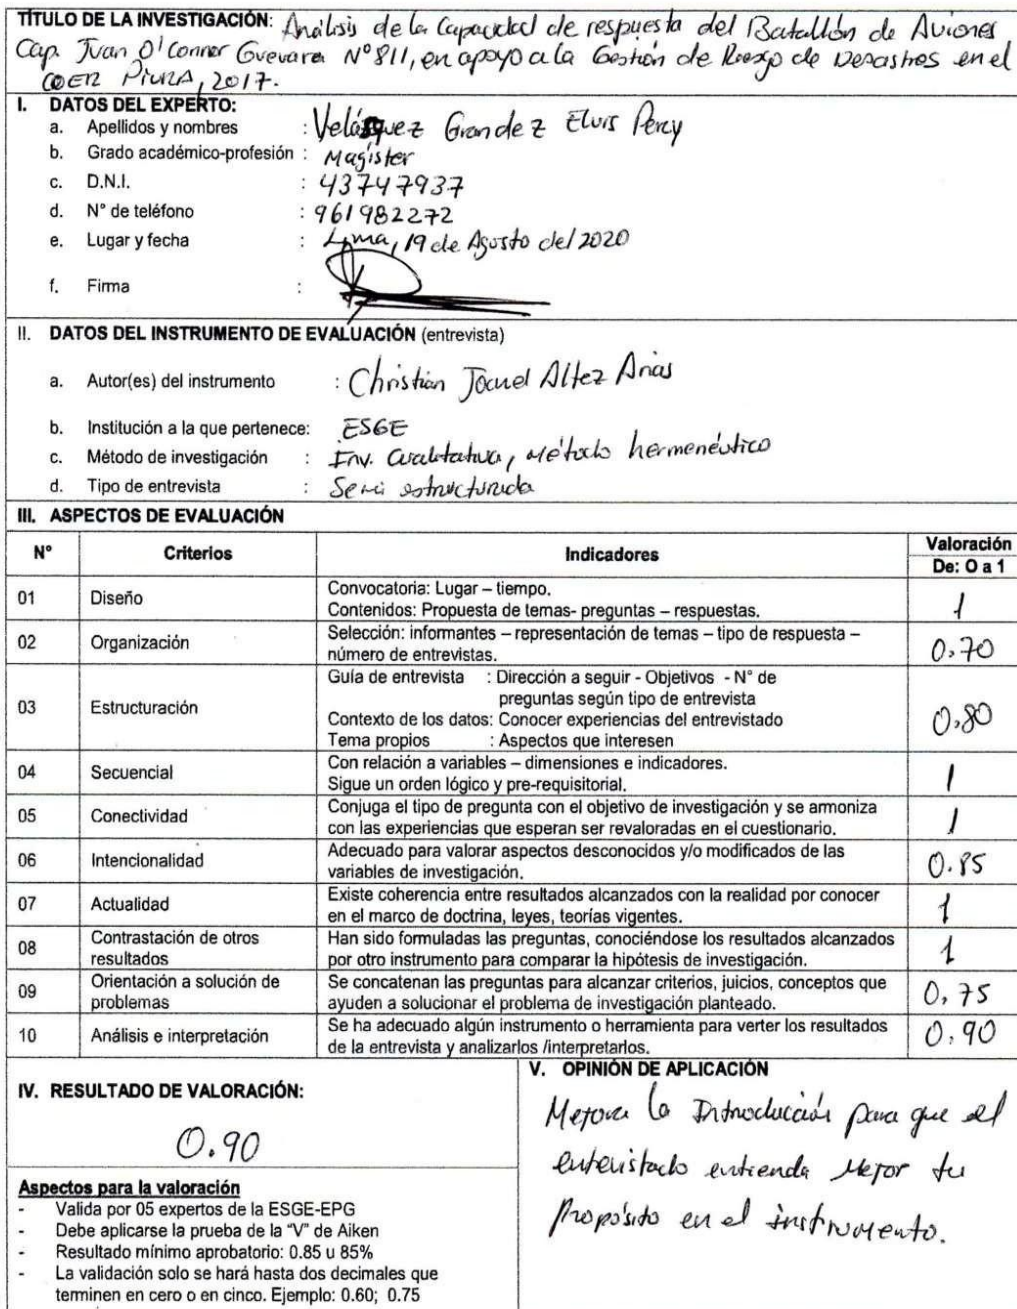 TÍTULO DE LA INVESTIGACIÓN: Análisis de la Capacidad de respuesta del Batallón de Aviones
Cap. Juan O'Connor Guevara N°811, en apoyo a la Gestión de Riesgo de Desastres en el
COER PIURA, 2017.
I. DATOS DEL EXPERTO:
a. Apellidos y nombres : Velásquez Grandez Elvis Percy
b. Grado académico-profesión : Magister
c. D.N.I. : 43747937
d. N° de teléfono : 961982272
e. Lugar y fecha : Lima, 19 de Agosto del 2020
f. Firma :
II. DATOS DEL INSTRUMENTO DE EVALUACIÓN (entrevista)
a. Autor(es) del instrumento : Christian Joanel Altez Arias
b. Institución a la que pertenece: ESGE
c. Método de investigación : Inv. Cualitativa, Método hermenéutico
d. Tipo de entrevista : Semi estructurada
III. ASPECTOS DE EVALUACIÓN
N° Criterios Indicadores Valoración
De: O a 1
01 Diseño Convocatoria: Lugar – tiempo.
Contenidos: Propuesta de temas- preguntas – respuestas. 1
02 Organización Selección: informantes – representación de temas – tipo de respuesta –
número de entrevistas. 0.70
03 Estructuración Guía de entrevista : Dirección a seguir - Objetivos - N° de
preguntas según tipo de entrevista
Contexto de los datos: Conocer experiencias del entrevistado
Tema propios : Aspectos que interesen 0,80
04 Secuencial Con relación a variables – dimensiones e indicadores.
Sigue un orden lógico y pre-requisitorial. 1
05 Conectividad Conjuga el tipo de pregunta con el objetivo de investigación y se armoniza
con las experiencias que esperan ser revaloradas en el cuestionario. 1
06 Intencionalidad Adecuado para valorar aspectos desconocidos y/o modificados de las
variables de investigación. 0.85
07 Actualidad Existe coherencia entre resultados alcanzados con la realidad por conocer
en el marco de doctrina, leyes, teorías vigentes. 1
08 Contrastación de otros
resultados Han sido formuladas las preguntas, conociéndose los resultados alcanzados
por otro instrumento para comparar la hipótesis de investigación. 1
09 Orientación a solución de
problemas Se concatenan las preguntas para alcanzar criterios, juicios, conceptos que
ayuden a solucionar el problema de investigación planteado. 0,75
10 Análisis e interpretación Se ha adecuado algún instrumento o herramienta para verter los resultados
de la entrevista y analizarlos /interpretarlos. 0.90
IV. RESULTADO DE VALORACIÓN:
0.90
Aspectos para la valoración
- Valida por 05 expertos de la ESGE-EPG
- Debe aplicarse la prueba de la "V" de Aiken
- Resultado mínimo aprobatorio: 0.85 u 85%
- La validación solo se hará hasta dos decimales que
terminen en cero o en cinco. Ejemplo: 0.60; 0.75
V. OPINIÓN DE APLICACIÓN
Mejorar la Introducción para que el
entrevistado entienda Mejor tu
Propósito en el instrumento.